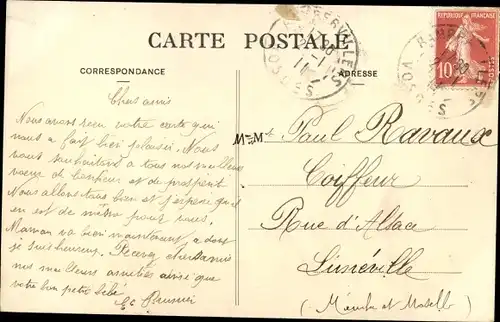 CARTE POSTALE
CORRESPONDANCE
ADRESSE
RAMBERVILLERS
VOSGES
RÉPUBLIQUE FRANÇAISE
10
Chers amis
Nous avons reçu votre carte qui
nous a fait bien plaisir. Nous
vous souhaitant à tous nos meilleurs
vœux de bonheur et de prospérité
Nous allons tous bien et j'espère qu'il
en est de même pour vous.
Maman va bien maintenant, dont
je suis heureux. Recevez chers amis
nos meilleurs amitiés ainsi que
votre bon petit bébé.
M. et Mme Paul Ravaux
Coiffeur
Rue d'Alsace
Lunéville
(Meurthe et Moselle)